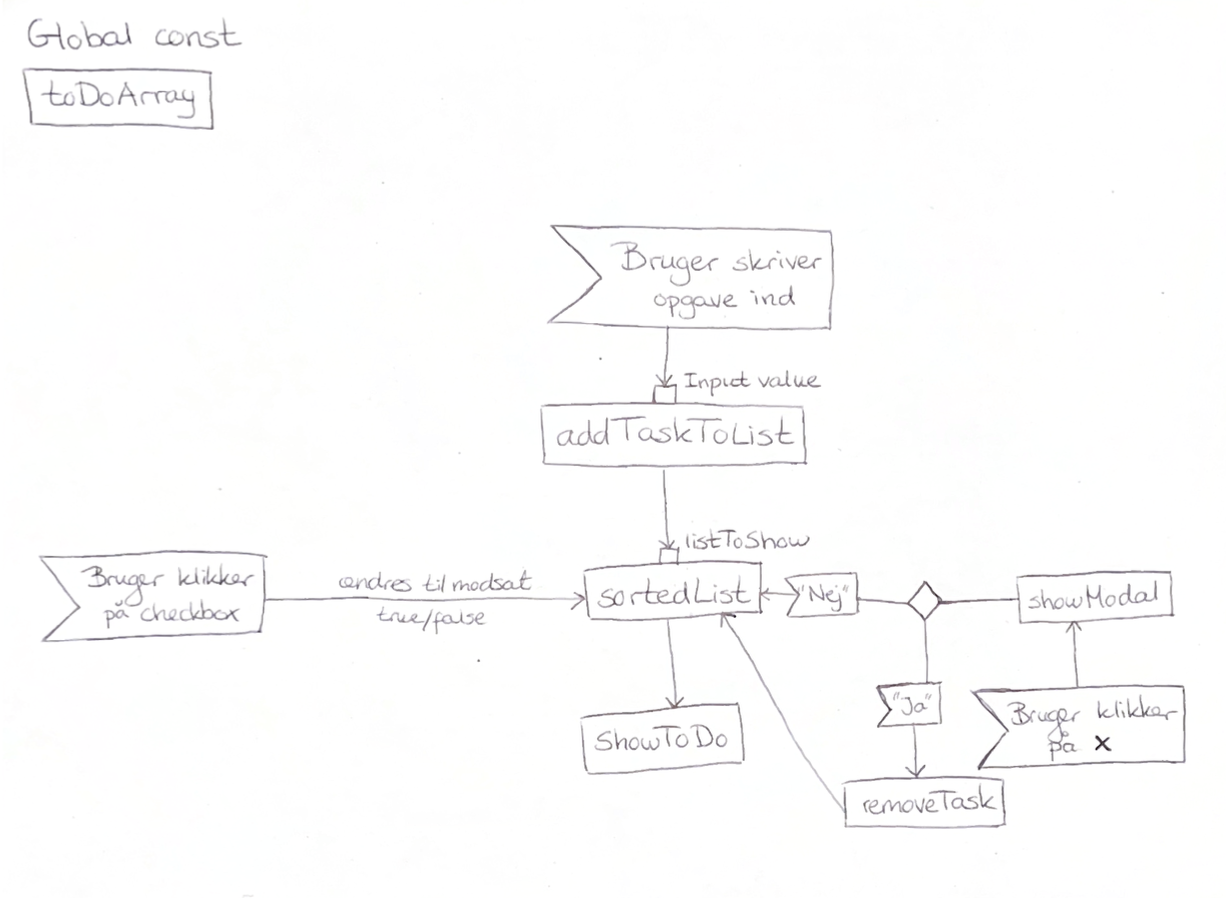 Global const
toDoArray
Bruger skriver
opgave ind
Input value
addTaskToList
listToShow
Bruger klikker
på checkbox
ændres til modsat
true/false
sortedList
"Nej"
showModal
"Ja"
Bruger klikker
på x
ShowToDo
removeTask